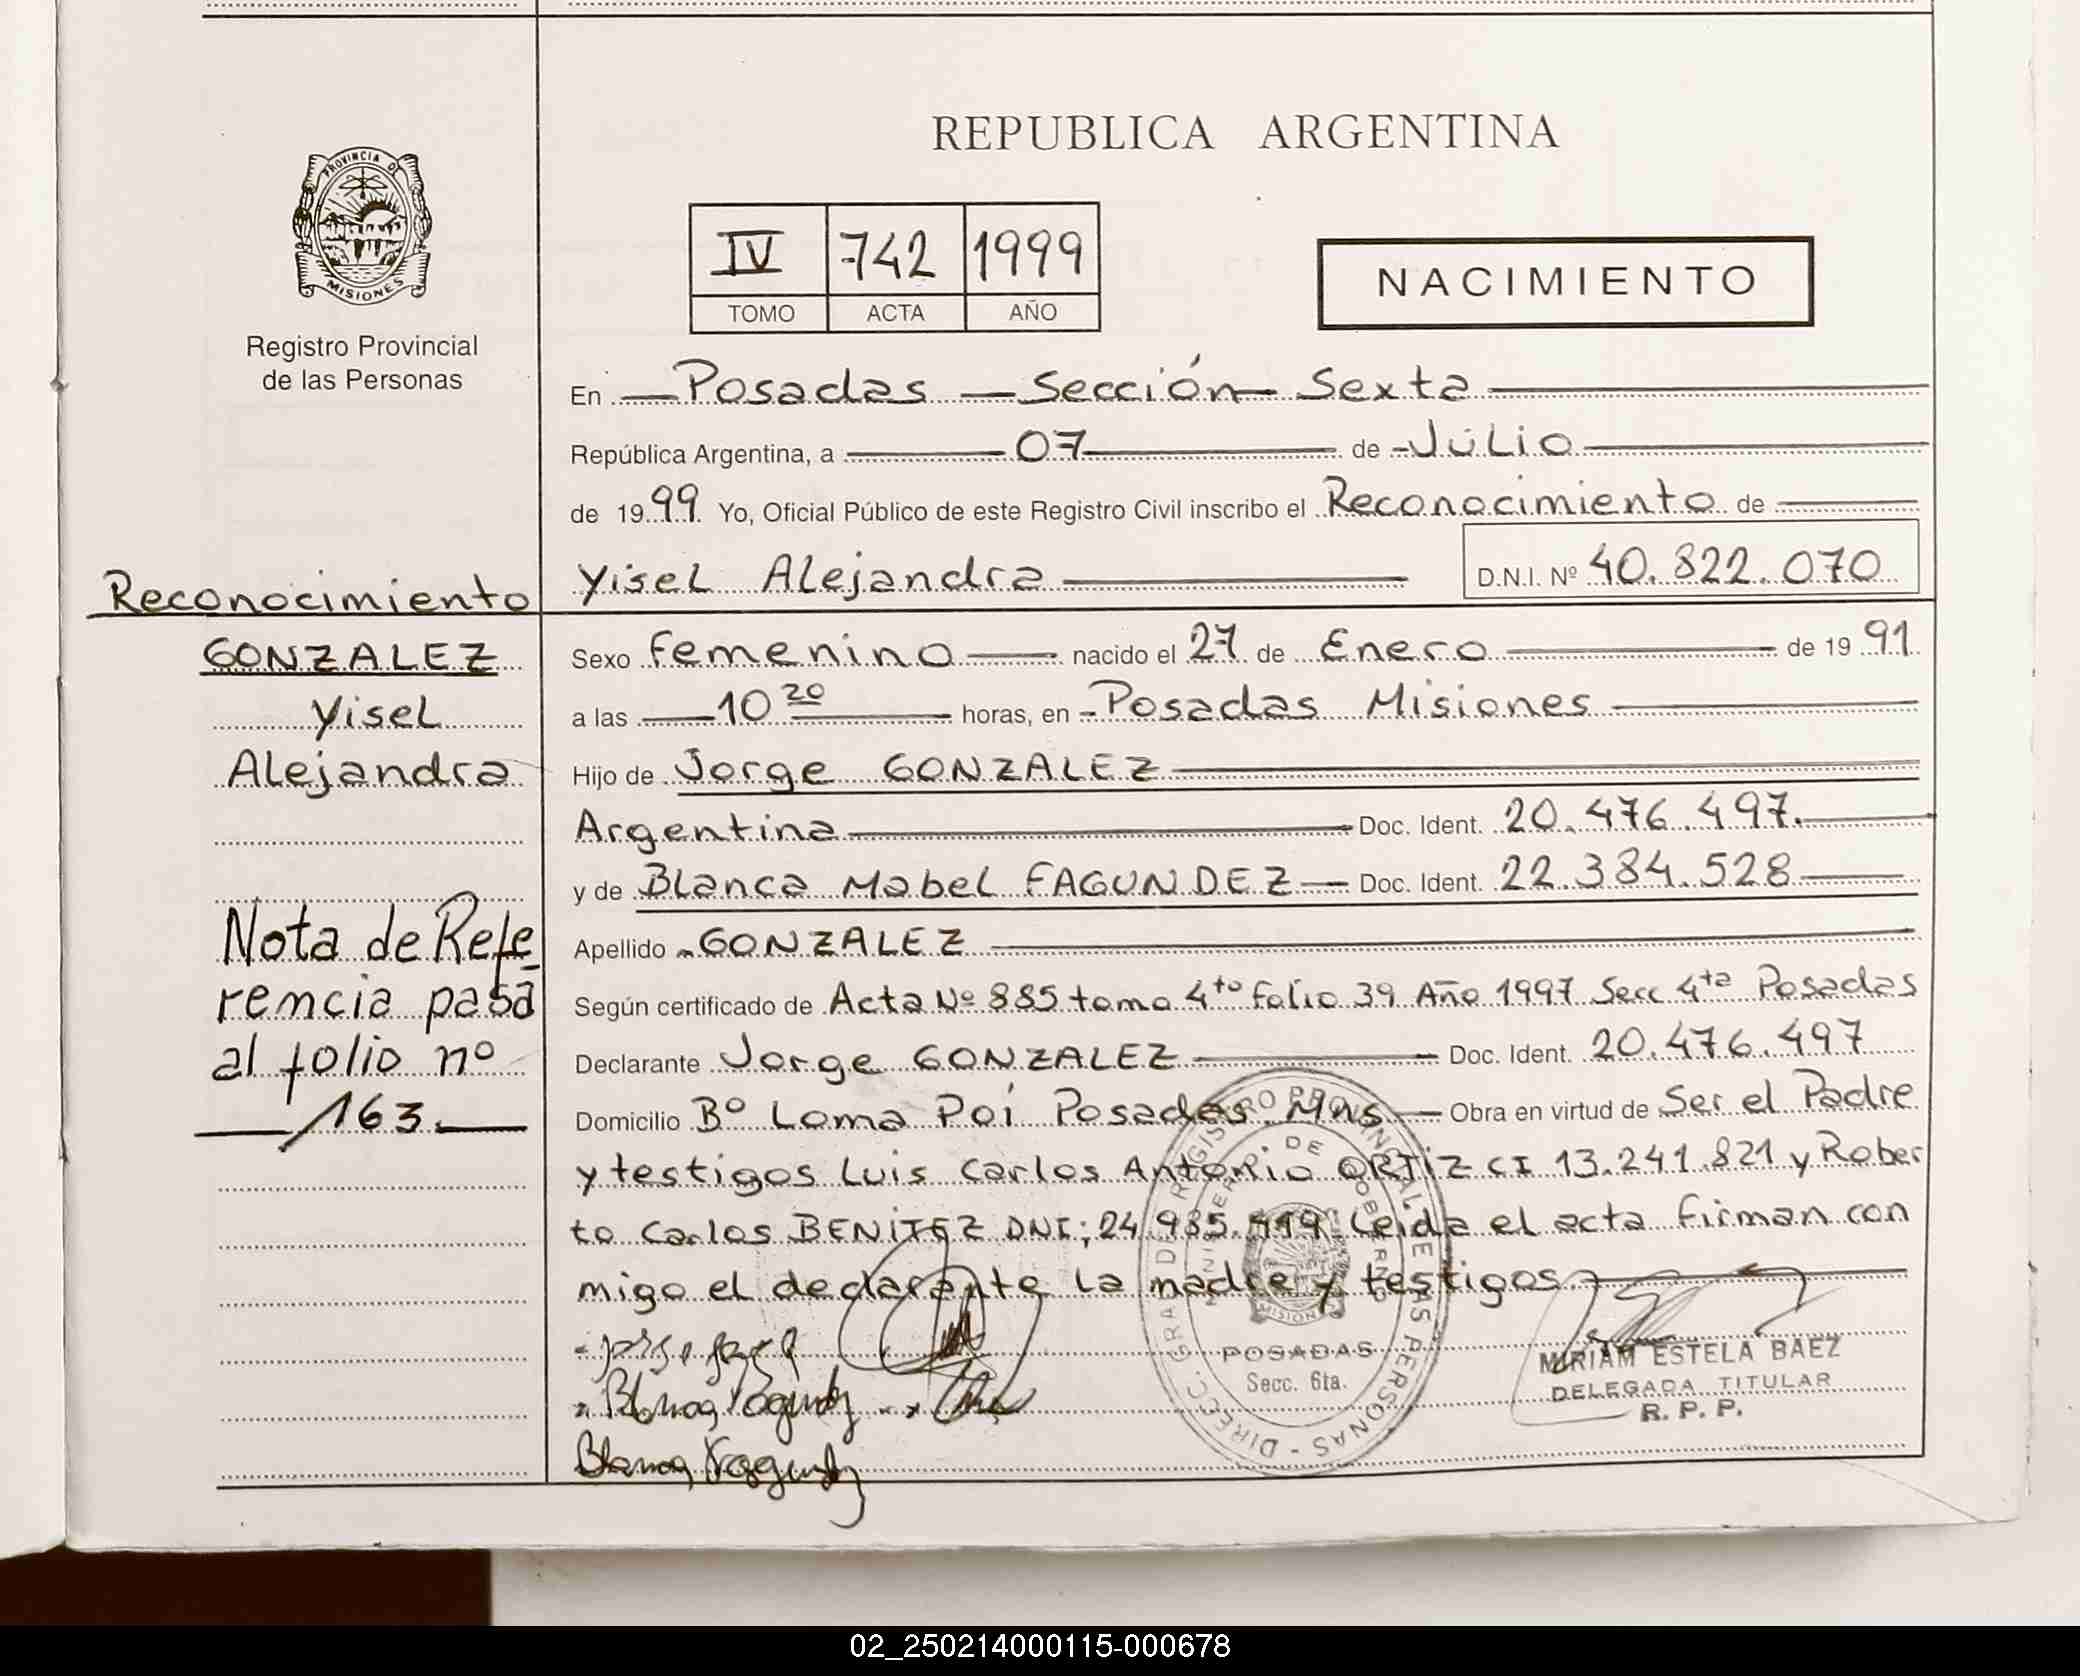 REPUBLICA ARGENTINA
PROVINCIA DE
MISIONES
Registro Provincial
de las Personas
IV 742 1999
TOMO ACTA AÑO
NACIMIENTO
En Posadas - Sección Sexta
República Argentina, a 07 de Julio
de 1999 Yo, Oficial Público de este Registro Civil inscribo el Reconocimiento de
Yisel Alejandra D.N.I. Nº 40.822.070
Reconocimiento
GONZALEZ
Yisel
Alejandra
Nota de Refe
rencia pasa
al folio nº
163.
Sexo Femenino nacido el 27 de Enero de 1991
a las 10 20 horas, en Posadas Misiones
Hijo de Jorge GONZALEZ
Argentina Doc. Ident. 20.476.497.
y de Blanca Mabel FAGUNDEZ Doc. Ident. 22.384.528
Apellido GONZALEZ
Según certificado de Acta Nº 885 tomo 4to Folio 39 Año 1997 Secc 4ta Posadas
Declarante Jorge GONZALEZ Doc. Ident. 20.476.497
Domicilio Bº Loma Poi Posadas Mns Obra en virtud de Ser el Padre
y testigos Luis Carlos Antonio ORTIZ CI 13.241.821 y Rober
to Carlos BENITEZ DNI; 24.935. Leida el acta firman con
migo el declarante la madre y testigos
Blanca Fagundez
Blanca Fagundez
DIRECC. GRAL DE REGISTRO PROVINCIAL DE LAS PERSONAS
MINISTERIO DE GOBIERNO
MISIONES
POSADAS
Secc. 6ta.
MIRIAM ESTELA BAEZ
DELEGADA TITULAR
R. P. P.
02_250214000115-000678